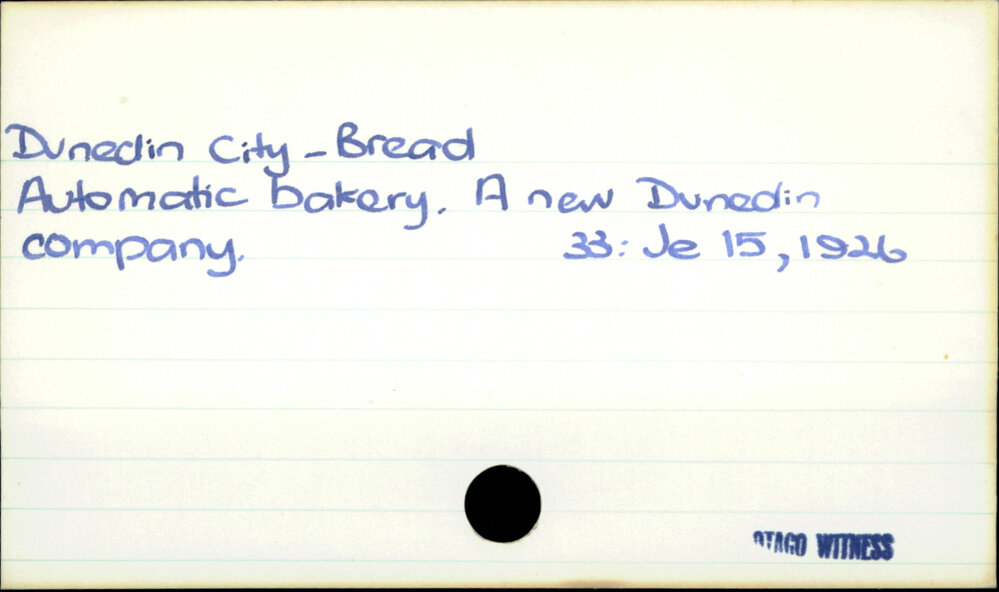 Dunedin City - Bread
Automatic bakery. A new Dunedin
company. 33: Je 15, 1926
OTAGO WITNESS